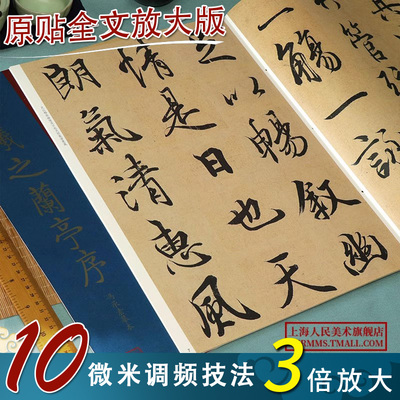 原贴全文放大版
一觴一詠
以暢叙幽
情是日也天
朗氣清惠風
之蘭亭序
上海人民美术旗舰店
SHRMMS.TMALL.COM
10微米调频技法 3倍放大